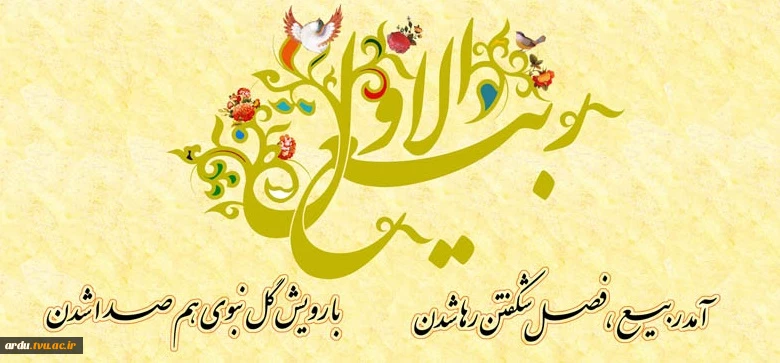 ربیع الاول
آمد ربیع ، فصل شکفتن رها شدن
با رویش گل نبوی هم صدا شدن
ardu.tvu.ac.ir